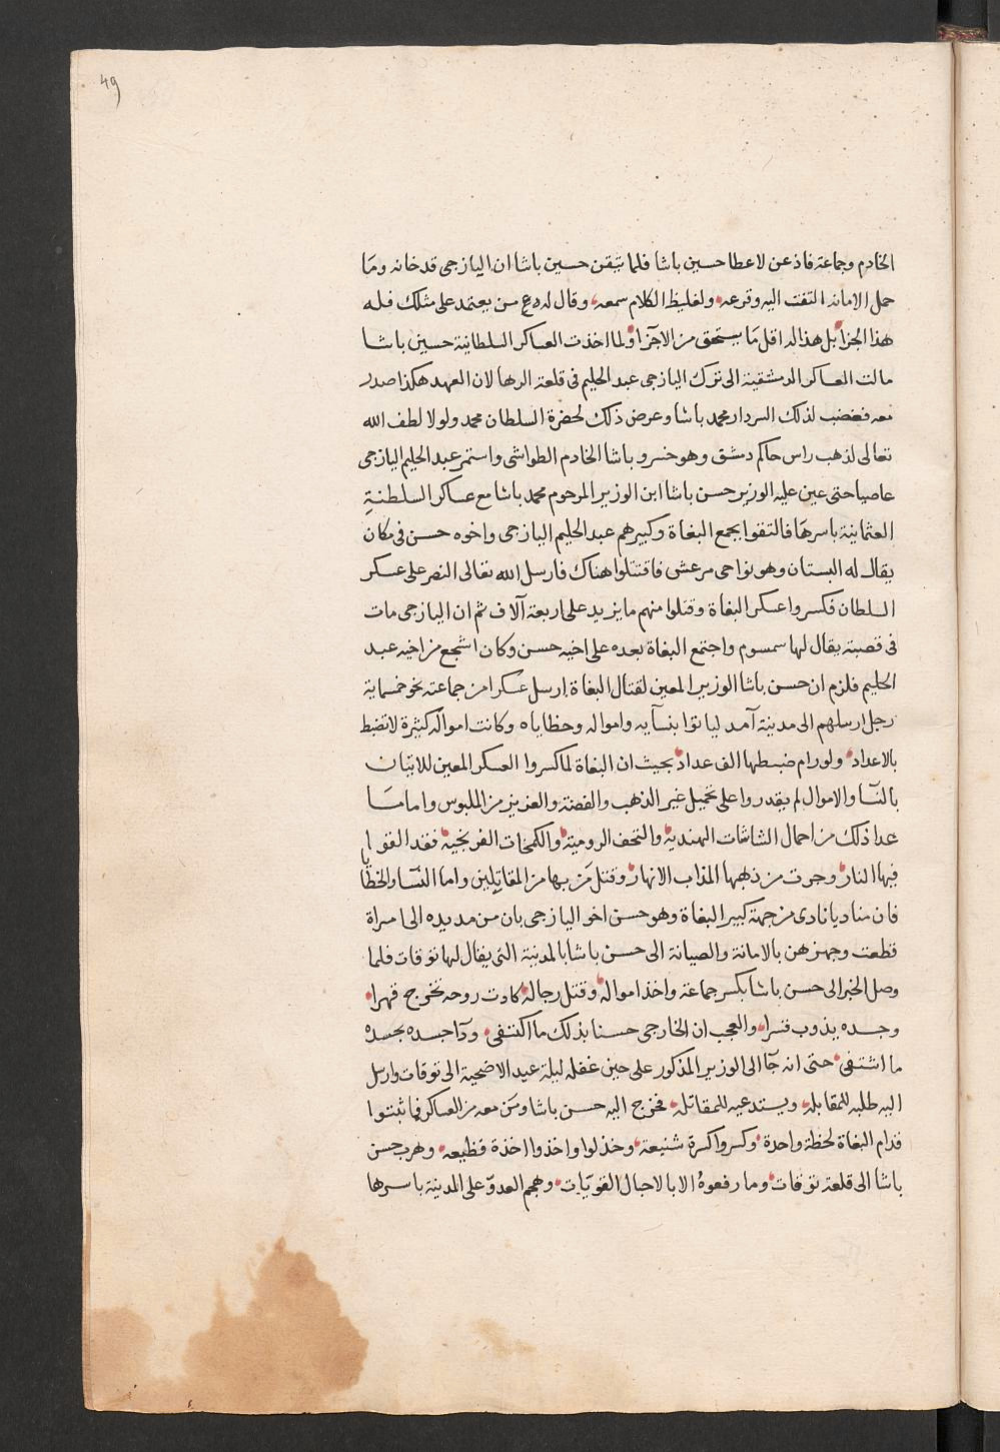 49
الخادم وجماعته فاذعن لاعطا حسين باشا فلما تيقن حسين باشا ان اليازجى قد خانه وما
حمل الامانه التفت اليه وقرعه ولغليظ الكلام سمعه وقال له دع من يعتمد على مثلك فله
هذا الجزا بل هذا له اقل ما يستحق من الاجزا ولما اخذت العساكر السلطانية حسين باشا
مالت العساكر الدمشقية الى ترك اليازجى عبد الحليم فى قلعة الرها لان العهد هكذا صدر
معه فغضب لذلك السردار محمد باشا وعرض ذلك لحضرة السلطان محمد ولولا لطف الله
تعالى لذهب راس حاكم دمشق وهو خسرو باشا الخادم الطواشى واستمر عبد الحليم اليازجى
عاصيا حتى عين عليه الوزير حسن باشا ابن الوزير المرحوم محمد باشا مع عساكر السلطنة
العثمانية باسرها فالتقوا بجمع البغاة وكبيرهم عبد الحليم اليازجى واخوه حسن فى مكان
يقال له البستان وهو نواحى مرعش فاقتتلوا هناك فارسل الله تعالى النصر على عسكر
السلطان فكسروا عسكر البغاة وقتلوا منهم ما يزيد على اربعة آلاف ثم ان اليازجى مات
فى قصبة يقال لها سمسوم واجتمع البغاة بعده على اخيه حسن وكان اشجع من اخيه عبد
الحليم فلزم ان حسن باشا الوزير المعين لقتال البغاة ارسل عسكرا من جماعته نحو خمسماية
رجل ارسلهم الى مدينة آمد لياتوا بنسآيه وامواله وحظاياه وكانت امواله كثيرة لا تضبط
بالاعداد ولو رام ضبطها الف عداد بحيث ان البغاة لما كسروا العسكر المعين للاتيان
بالنسآ والاموال لم يقدروا على تحميل غير الذهب والفضة والعزيز من الملبوس واما ما
عدا ذلك من احمال الشاشات الهندية والتحف الرومية والكمخات الفرنجية فقد القوا
فيها النار وجرت من ذهبها المذاب الانهار وقتل من بها من المقاتلين واما النسآ والحظايا
فان مناديا نادى من جهة كبير البغاة وهو حسن اخو اليازجى بان من مد يده الى امراة
قطعت وجهزهن بالامانة والصيانة الى حسن باشا بالمدينة التى يقال لها توقات فلما
وصل الخبر الى حسن باشا بكسر جماعته واخذ امواله وقتل رجاله كادت روحه تخرج قهرا
وجسده يذوب قسرا والعجب ان الخارجى حسنا بذلك ما اكتفى ودآ حسده بجسده
ما اشتفى حتى انه جآ الى الوزير المذكور على حين غفله ليلة عيد الاضحية الى توقات وارسل
اليه طلبه للمقابلة ويستدعيه للمقاتلة فخرج اليه حسن باشا ومن معه من العساكر فما ثبتوا
قدام البغاة لحظة واحدة وكسروا كسرة شنيعة وخذلوا واخذوا اخذة فظيعه وهرب حسن
باشا الى قلعة توقات وما رفعوهُ الا بالاحبال القويّات وهجم العدوّ على المدينة باسرها